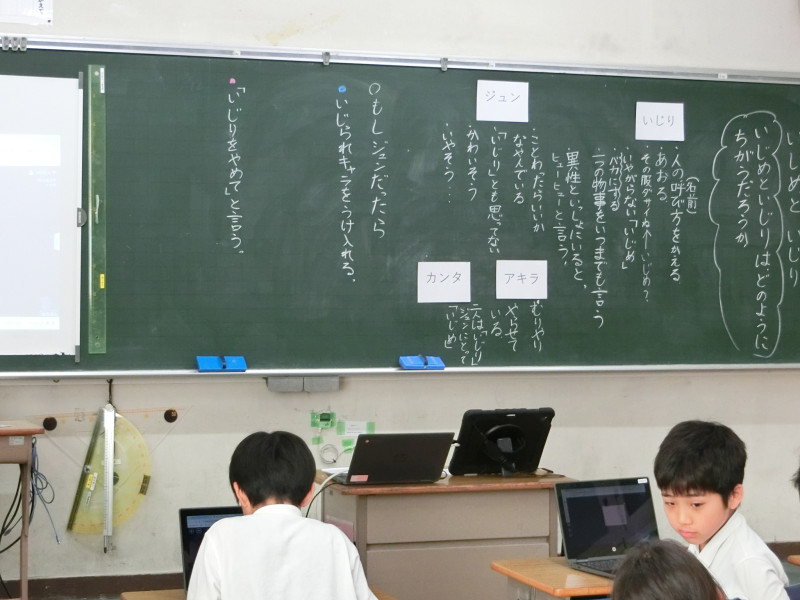 いじめと いじり
いじめといじりは、どのように
ちがうだろうか
いじり
(名前)
人の呼び方をかえる
あおる
その服ダサイねー(いじめ?)
いやがらない「いじめ」
バカにする
一つの物事をいつまでも言う
異性といっしょにいると、
ヒューヒューと言う。
ジュン
・ことわったらいいか
なやんでいる
・「いじり」とも思ってない
・かわいそう
・いやそう…
アキラ
むりやり
やらせて
いる
カンタ
二人は「いじり」
ジュンにとって
「いじめ」
○もしジュンだったら
いじられキャラをうけ入れる。
「いじりをやめて」と言う。